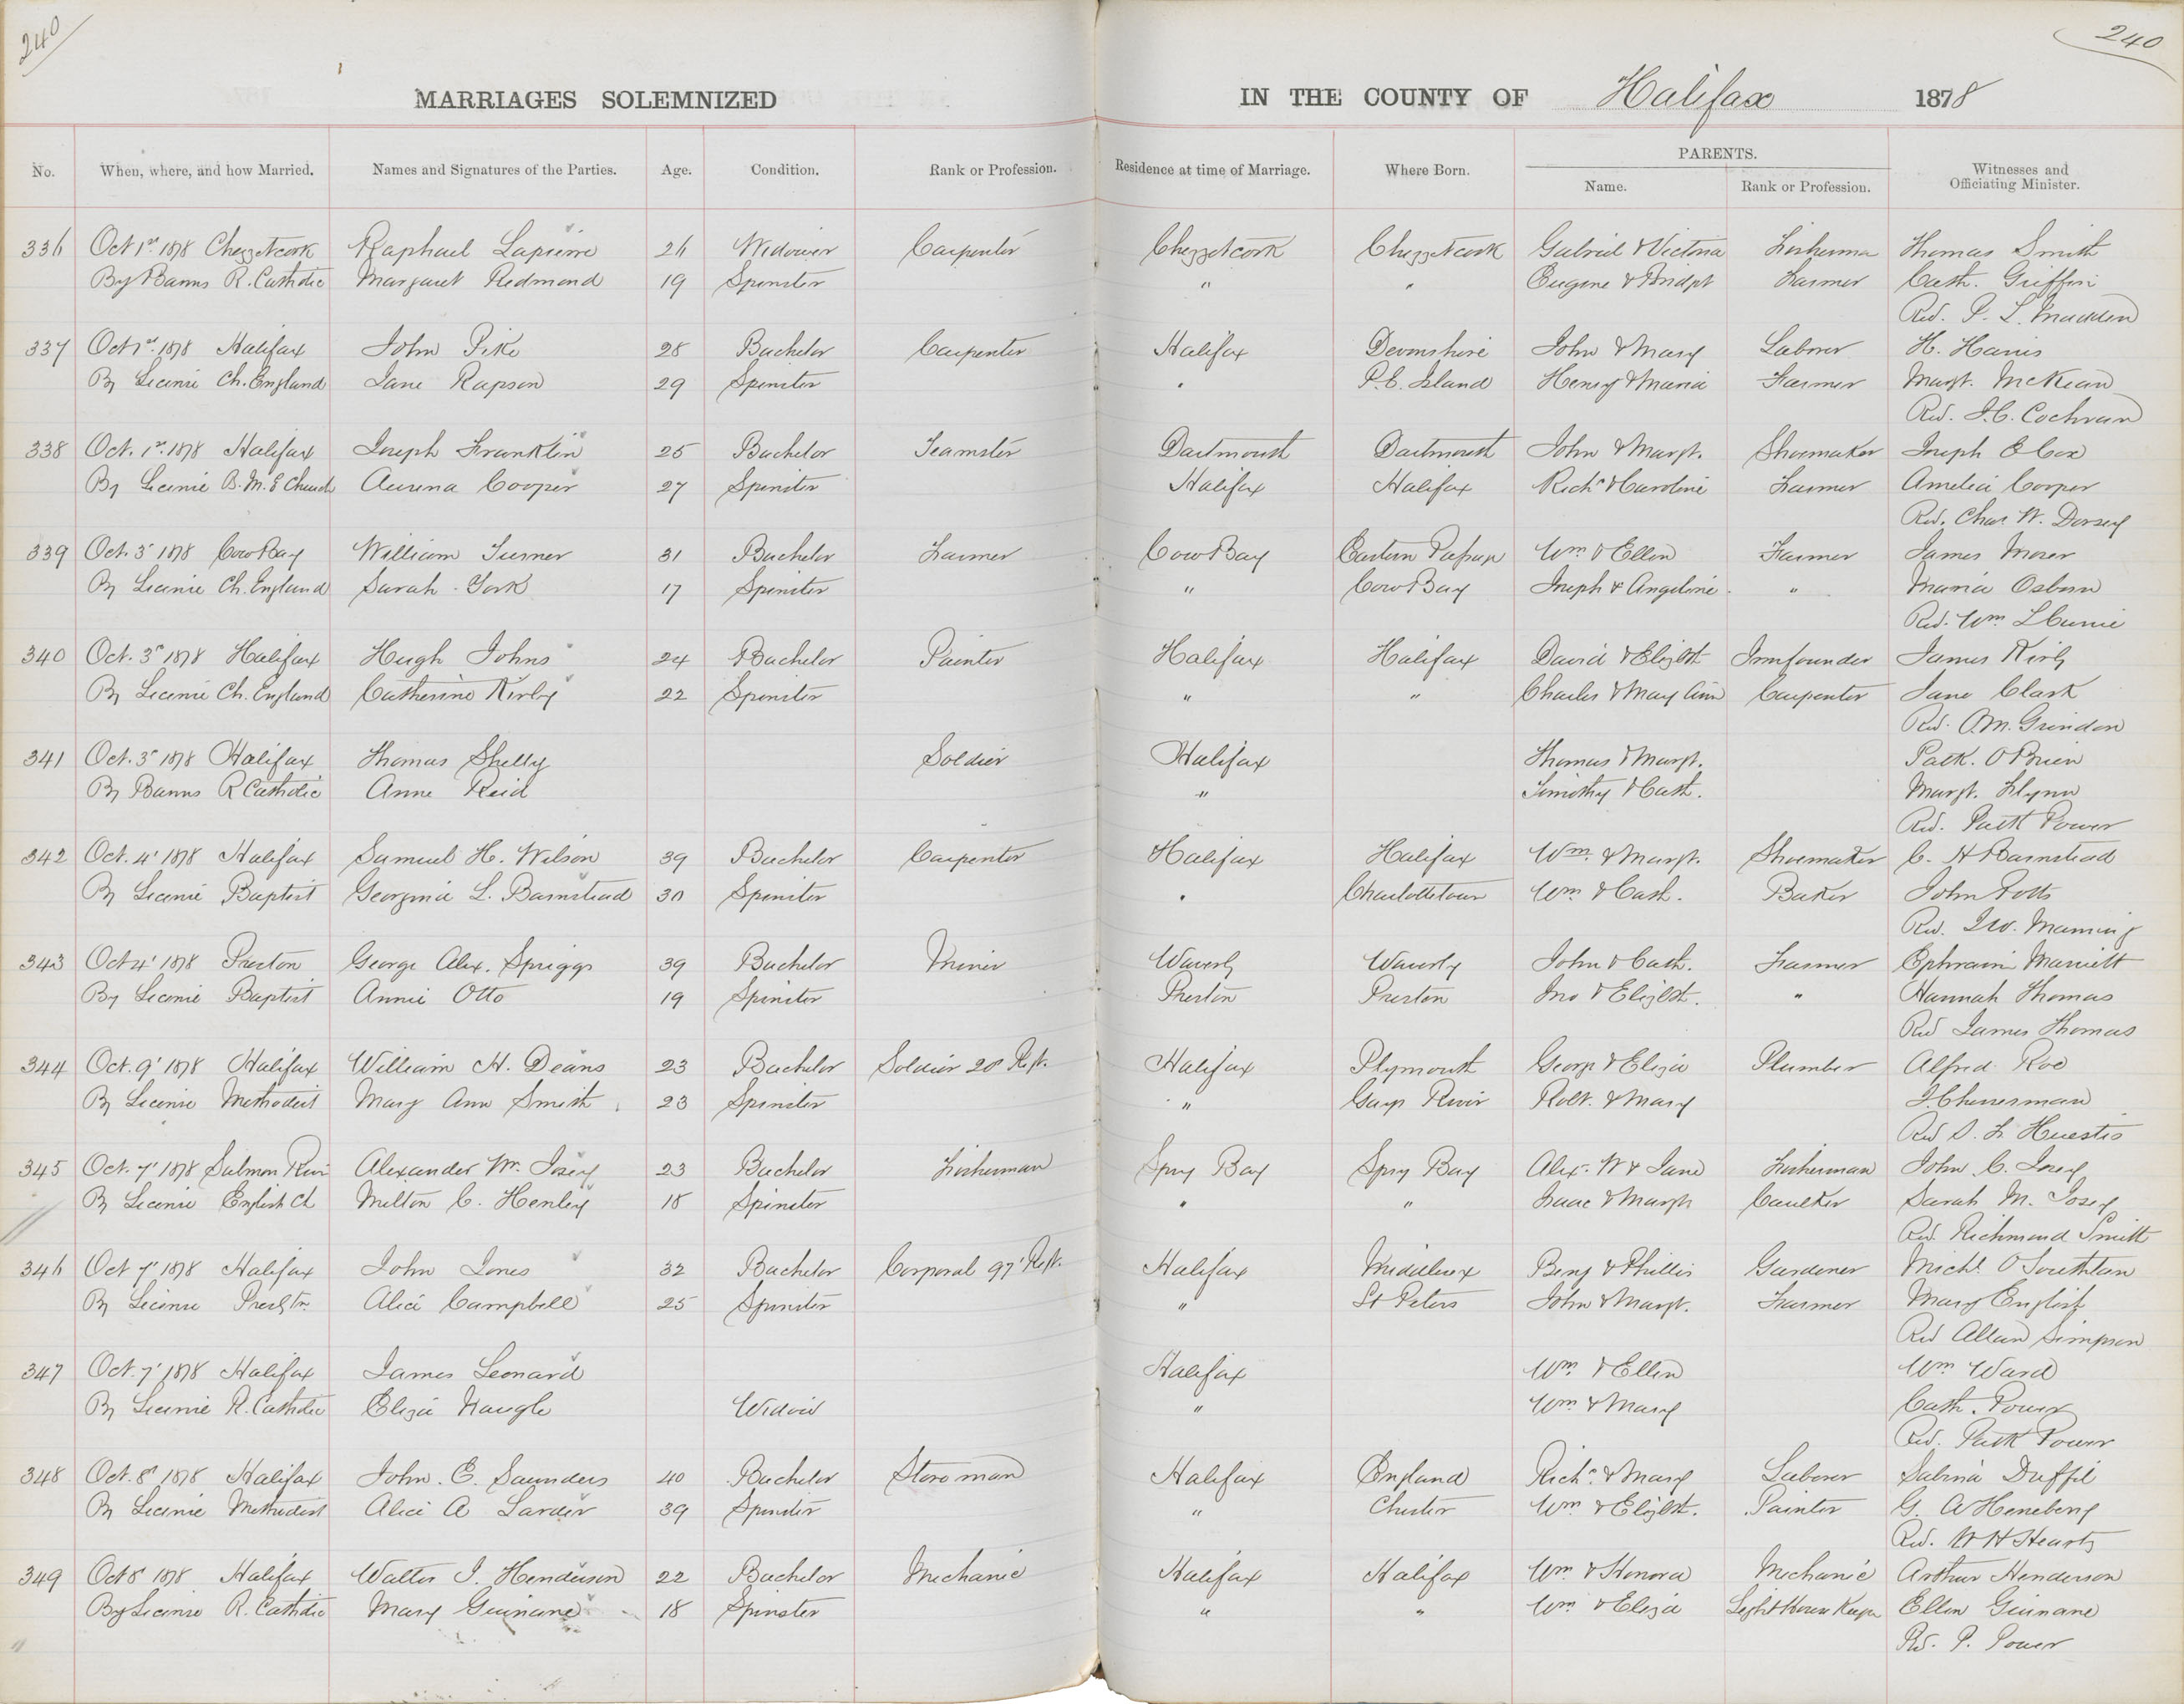 240
240
MARRIAGES SOLEMNIZED IN THE COUNTY OF Halifax 1878
No. When, where, and how Married. Names and Signatures of the Parties. Age. Condition. Rank or Profession. Residence at time of Marriage. Where Born. PARENTS. Name. Rank or Profession. Witnesses and Officiating Minister.
336 Oct 1st 1878 Chezzetcook Raphael Lapierre 26 Widower Carpenter Chezzetcook Chezzetcook Gabriel & Victoria Fisherman Thomas Smith
By Banns R. Catholic Margaret Redmond 19 Spinster " " Eugene & Bridgt Farmer Cath. Griffin
Rev. P. L. Madden
337 Oct 1st 1878 Halifax John Pike 28 Bachelor Carpenter Halifax Devonshire John & Mary Laborer H. Harris
By License Ch. England Jane Rapson 29 Spinster " P.E. Island Henry & Maria Farmer Margt. McKean
Rev. J.C. Cochran
338 Oct. 1st 1878 Halifax Joseph Franklin 25 Bachelor Teamster Dartmouth Dartmouth John & Margt. Shoemaker Joseph E Cox
By License B.M.E Church Aurena Cooper 27 Spinster Halifax Halifax Richd & Caroline Farmer Amelia Cooper
Rev. Chas W. Dorsey
339 Oct. 3 1878 Cow Bay William Turner 31 Bachelor Farmer Cow Bay Eastern Passage Wm & Ellen Farmer James Moser
By License Ch. England Sarah York 17 Spinster " Cow Bay Joseph & Angeline " Maria Osborn
Rev. Wm L Currie
340 Oct. 3rd 1878 Halifax Hugh Johns 24 Bachelor Painter Halifax Halifax David & Elizbt Ironfounder James Kirby
By License Ch. England Catherine Kirby 22 Spinster " " Charles & Mary Ann Carpenter Jane Clark
Rev. O.M. Grindon
341 Oct. 3rd 1878 Halifax Thomas Shelly Soldier Halifax Thomas & Margt. Patk. O'Brien
By Banns R Catholic Anne Reid " Timothy & Cath. Margt. Flynn
Rev. Patk Power
342 Oct. 4' 1878 Halifax Samuel H. Wilson 39 Bachelor Carpenter Halifax Halifax Wm. & Margt. Shoemaker C. H Barnstead
By License Baptist Georgina L. Barnstead 30 Spinster " Charlottetown Wm & Cath. Baker John Potts
Rev. J.W. Manning
343 Oct 4' 1878 Preston George Alex. Spriggs 39 Bachelor Miner Waverly Waverly John & Cath. Farmer Ephraim Marriett
By License Baptist Annie Otto 19 Spinster Preston Preston Jno & Elizbt. " Hannah Thomas
Rev James Thomas
344 Oct. 9' 1878 Halifax William H. Deans 23 Bachelor Soldier 20 Regt. Halifax Plymouth George & Eliza Plumber Alfred Roe
By License Methodist Mary Ann Smith 23 Spinster " Gays River Robt. & Mary J Cheeseman
Rev S. F. Huestis
345 Oct. 7' 1878 Salmon Rivr Alexander W. Josey 23 Bachelor Fisherman Spry Bay Spry Bay Alex. W & Jane Fisherman John C. Josey
By License English Ch Melton C. Henley 18 Spinster " " Isaac & Margt Caulker Sarah M. Josey
Rev Richmond Smith
346 Oct 7' 1878 Halifax John Jones 32 Bachelor Corporal 97' Regt. Halifax Middlesex Benj & Phillis Gardener Michl O Southton
By License Presbtn Alice Campbell 25 Spinster " St Peters John & Margt. Farmer Mary English
Rev Allan Simpson
347 Oct. 7' 1878 Halifax James Leonard Halifax Wm & Ellen Wm Ward
By License R. Catholic Eliza Naugle Widow " Wm & Mary Cath. Power
Rev. Patk Power
348 Oct. 8' 1878 Halifax John. E. Saunders 40 Bachelor Storeman Halifax England Richd & Mary Laborer Salina Duffil
By License Methodist Alice A Larder 39 Spinster " Chester Wm & Elizbt. Painter G. A Heneberg
Rev. W H Heartz
349 Oct 8' 1878 Halifax Walter J. Henderson 22 Bachelor Mechanic Halifax Halifax Wm & Honora Mechanic Arthur Henderson
By License R. Catholic Mary Guinane 18 Spinster " " Wm & Eliza Light House Keeper Ellen Guinane
Rev. P. Power